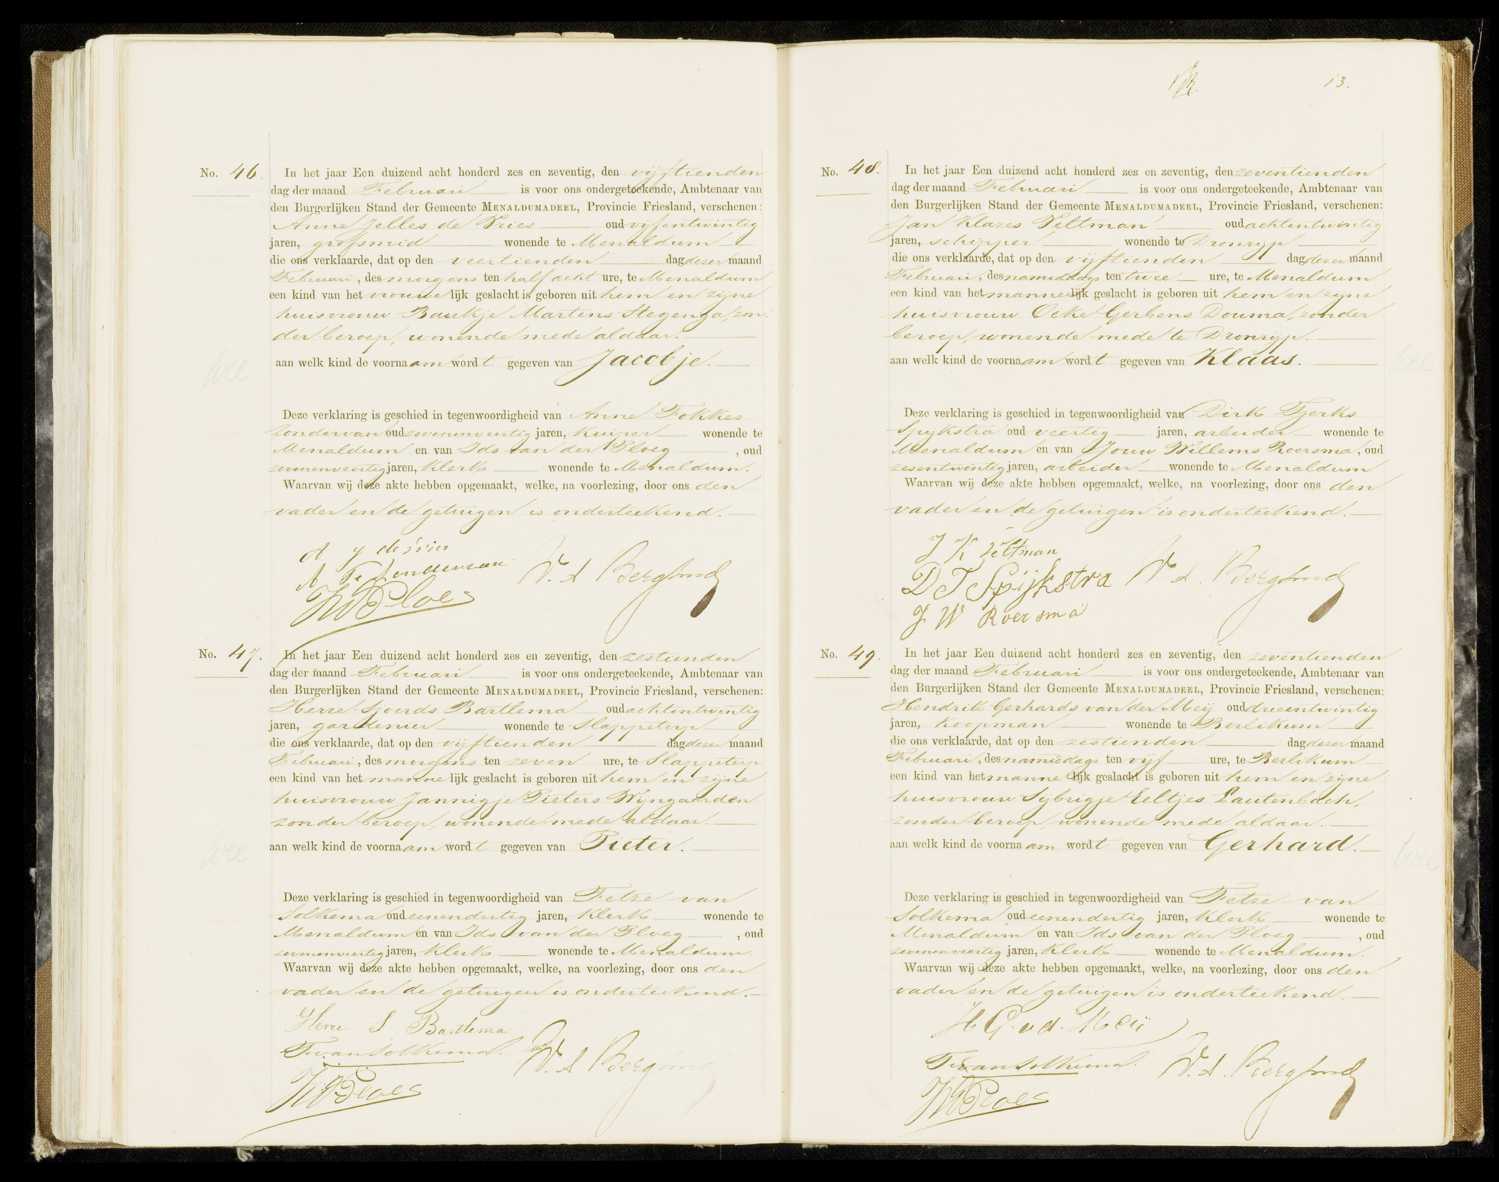 13.
No. 46.
In het jaar Een duizend acht honderd zes en zeventig, den vijftienden
dag der maand Februari is voor ons ondergeteekende, Ambtenaar van
den Burgerlijken Stand der Gemeente MENALDUMADEEL, Provincie Friesland, verschenen:
Anne Jelles de Vries oud vijfentwintig
jaren, grofsmid wonende te Menaldum
die ons verklaarde, dat op den veertienden dag dezer maand
Februari, des morgens ten half acht ure, te Menaldum
een kind van het vrouwelijk geslacht is geboren uit hem en zijne
huisvrouw Baukje Martens Stegenga, zon-
der beroep, wonende mede aldaar.
aan welk kind de voornaam wordt gegeven van Jacobje.
Deze verklaring is geschied in tegenwoordigheid van Anne Fokkes
Zondervan oud jaren, kuiper wonende te
Menaldum en van Ids van der Ploeg, oud
zevenenveertig jaren, klerk wonende te Menaldum.
Waarvan wij deze akte hebben opgemaakt, welke, na voorlezing, door ons den
vader en de getuigen is onderteekend.
A J de Vries
A F Zondervan
W. A Berghuis
IvdPloeg
No. 47.
In het jaar Een duizend acht honderd zes en zeventig, den zestienden
dag der maand Februari is voor ons ondergeteekende, Ambtenaar van
den Burgerlijken Stand der Gemeente MENALDUMADEEL, Provincie Friesland, verschenen:
Herre Sjoerds Bartlema oud achtentwintig
jaren, gardenier wonende te Slappeterp
die ons verklaarde, dat op den vijftienden dag dezer maand
Februari, des morgens ten zeven ure, te Slappeterp
een kind van het mannelijk geslacht is geboren uit hem en zijne
huisvrouw Jannigje Pieters Wijngaarden
zonder beroep, wonende mede aldaar.
aan welk kind de voornaam wordt gegeven van Pieter.
Deze verklaring is geschied in tegenwoordigheid van Fetze van
Solkema oud eenendertig jaren, klerk wonende te
Menaldum en van Ids van der Ploeg, oud
zevenenveertig jaren, klerk wonende te Menaldum.
Waarvan wij deze akte hebben opgemaakt, welke, na voorlezing, door ons den
vader en de getuigen is onderteekend.
Herre S Bartlema
F. van Solkema.
W. A Berghuis
IvdPloeg
No. 48.
In het jaar Een duizend acht honderd zes en zeventig, den zeventienden
dag der maand Februari is voor ons ondergeteekende, Ambtenaar van
den Burgerlijken Stand der Gemeente MENALDUMADEEL, Provincie Friesland, verschenen:
Jan Klazes Veltman oud achtentwintig
jaren, schipper wonende te Dronrijp
die ons verklaarde, dat op den vijftienden dag dezer maand
Februari, des namiddags ten twee ure, te Menaldum
een kind van het mannelijk geslacht is geboren uit hem en zijne
huisvrouw Oeke Gerbens Douma, zonder
beroep, wonende mede te Dronrijp.
aan welk kind de voornaam wordt gegeven van Klaas.
Deze verklaring is geschied in tegenwoordigheid van Dirk Tjerks
Spijkstra oud veertig jaren, arbeider wonende te
Menaldum en van Jouw Willems Roersma, oud
zesentwintig jaren, arbeider wonende te Menaldum
Waarvan wij deze akte hebben opgemaakt, welke, na voorlezing, door ons den
vader en de getuigen is onderteekend.
J K Veltman
D T Spijkstra
W. A. Berghuis
J W Roersma
No. 49.
In het jaar Een duizend acht honderd zes en zeventig, den zeventienden
dag der maand Februari is voor ons ondergeteekende, Ambtenaar van
den Burgerlijken Stand der Gemeente MENALDUMADEEL, Provincie Friesland, verschenen:
Hendrik Gerhards van der Meij oud drieentwintig
jaren, koopman wonende te Berlikum
die ons verklaarde, dat op den zestienden dag dezer maand
Februari, des namiddags ten vijf ure, te Berlikum
een kind van het mannelijk geslacht is geboren uit hem en zijne
huisvrouw Sybrigje Eeltjes Lautenbach,
zonder beroep, wonende mede aldaar.
aan welk kind de voornaam wordt gegeven van Gerhard.
Deze verklaring is geschied in tegenwoordigheid van Fetze van
Solkema oud eenendertig jaren, klerk wonende te
Menaldum en van Ids van der Ploeg, oud
zevenenveertig jaren, klerk wonende te Menaldum.
Waarvan wij deze akte hebben opgemaakt, welke, na voorlezing, door ons den
vader en de getuigen is onderteekend.
H G. v. d. Meij
F. van Solkema.
W. A. Berghuis
IvdPloeg